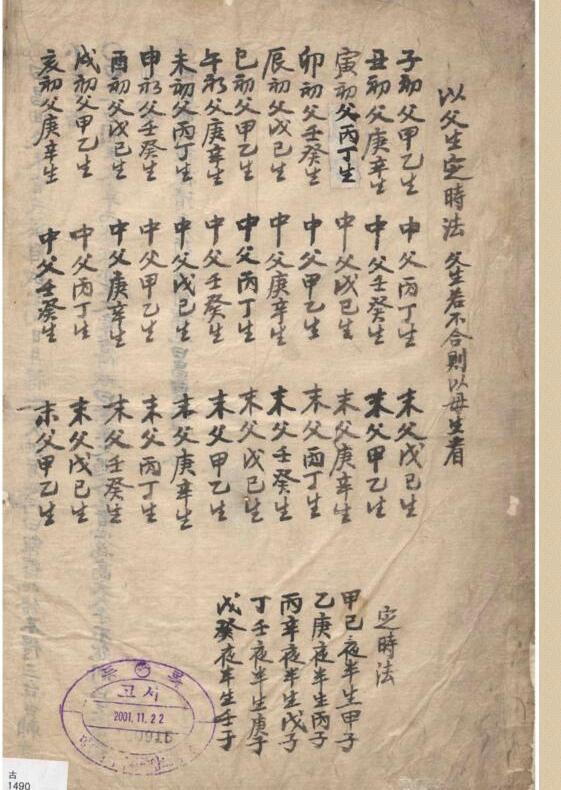 以父生定時法 父生若不合則以母生者
子初父甲乙生 中父丙丁生 末父戊己生
丑初父庚辛生 中父壬癸生 末父甲乙生
寅初父丙丁生 中父戊己生 末父庚辛生
卯初父壬癸生 中父甲乙生 末父丙丁生
辰初父戊己生 中父庚辛生 末父壬癸生
巳初父甲乙生 中父丙丁生 末父戊己生
午初父庚辛生 中父壬癸生 末父甲乙生
未初父丙丁生 中父戊己生 末父庚辛生
申初父壬癸生 中父甲乙生 末父丙丁生
酉初父戊己生 中父庚辛生 末父壬癸生
戌初父甲乙生 中父丙丁生 末父戊己生
亥初父庚辛生 中父壬癸生 末父甲乙生
定時法
甲己夜半生甲子
乙庚夜半生丙子
丙辛夜半生戊子
丁壬夜半生庚子
戊癸夜半生壬子
고서
2001.11.22
古
1490